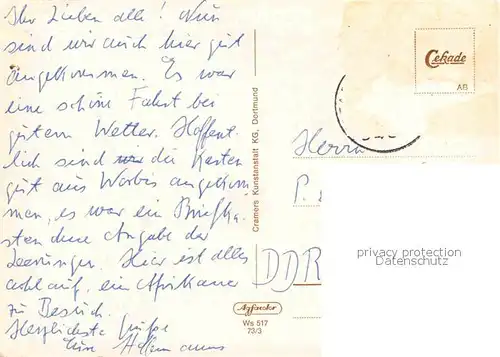 Ihr Lieben alle! Nun
sind wir auch hier gut
angekommen. Es war
eine schöne Fahrt bei
gutem Wetter. Hoffent
lich sind die Karten
gut aus Worbis angekom
men, es war ein Briefka
sten ohne Angabe der
Leerungen. Hier ist alles
wohlauf, ein Afrikaner
zu Besuch.
Herzlichste Grüße
Eure
Cramers Kunstanstalt KG, Dortmund
Cekade
AB
Herrn
P.
DDR
privacy protection
Datenschutz
Ws 517
73/3